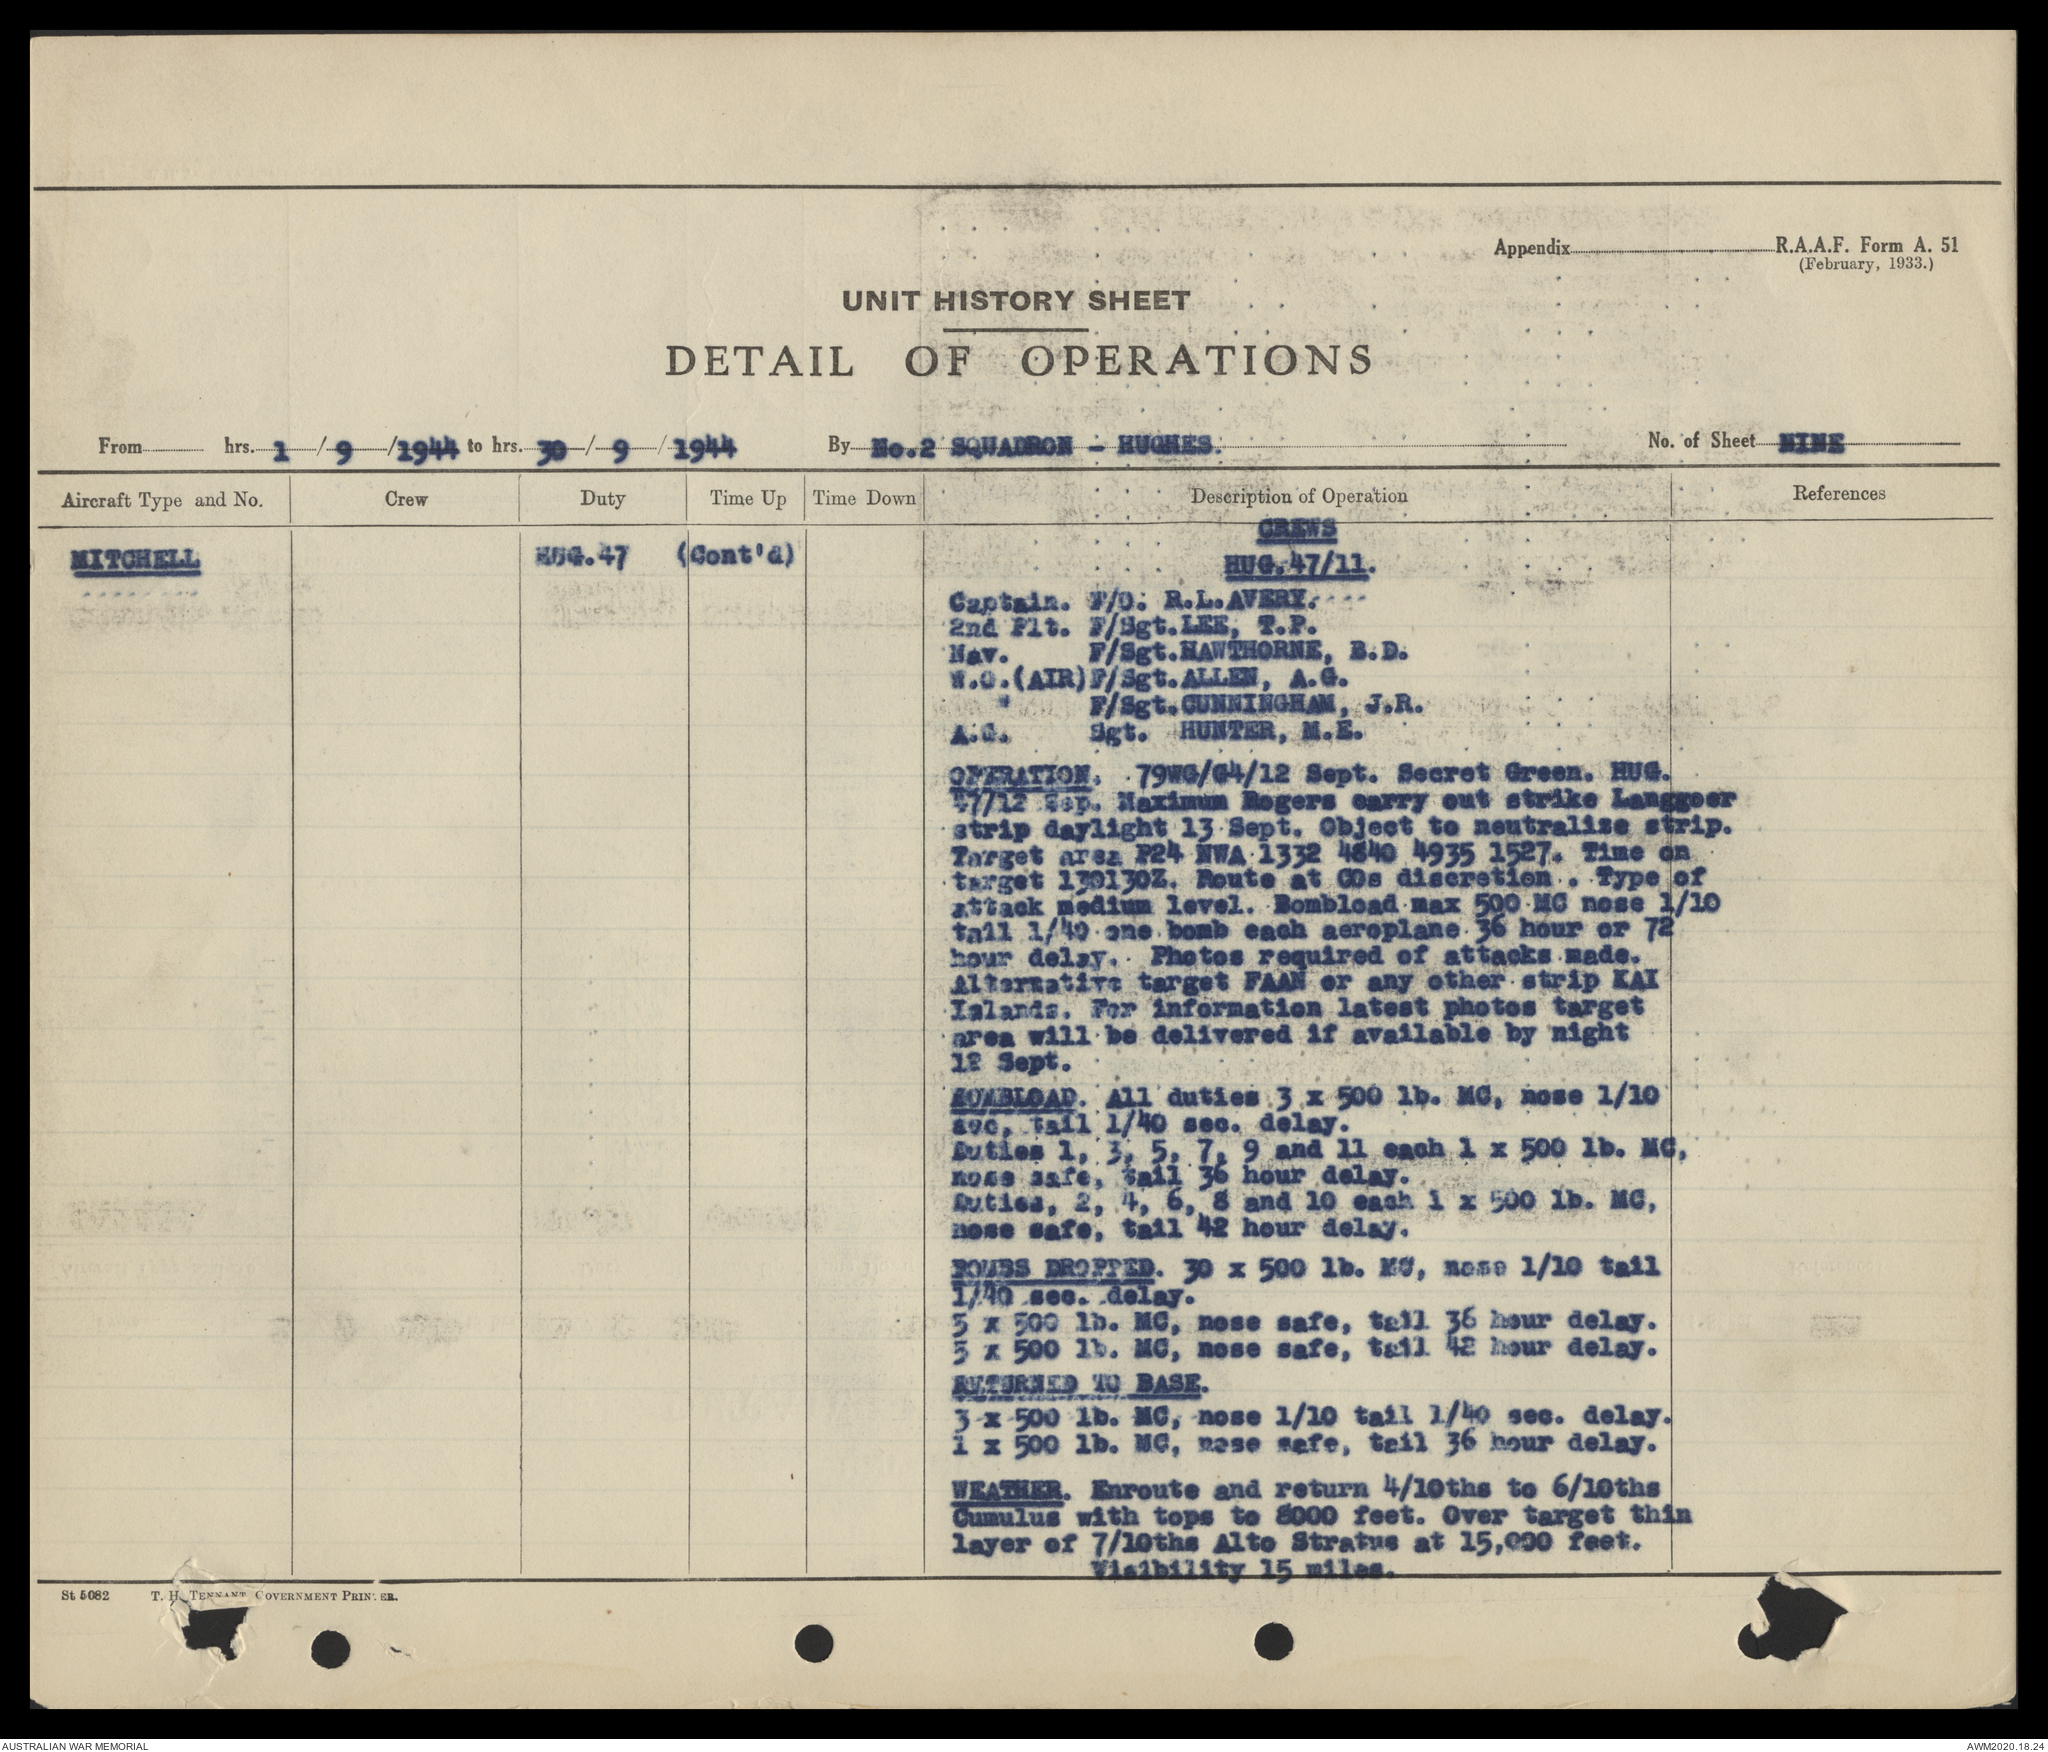 Appendix R.A.A.F. Form A. 51
(February, 1933.)
UNIT HISTORY SHEET
DETAIL OF OPERATIONS
From hrs. 1 / 9 /1944 to hrs. 30 / 9 / 1944 By No.2 SQUADRON - HUGHES. No. of Sheet NINE
Aircraft Type and No. Crew Duty Time Up Time Down Description of Operation References
CREWS
MITCHELL HUG.47 (Cont'd) HUG.47/11.
Captain. F/O. R.L.AVERY.
2nd Plt. F/Sgt.LEE, T.P.
Nav. F/Sgt.HAWTHORNE, B.D.
W.O.(AIR)F/Sgt.ALLEN, A.G.
" F/Sgt.CUNNINGHAM, J.R.
A.G. Sgt. HUNTER, M.E.
OPERATION. 79WG/G4/12 Sept. Secret Green. HUG.
47/12 Sep. Maximum Rogers carry out strike Langgoer
strip daylight 13 Sept. Object to neutralize strip.
Target area P24 NWA 1332 4840 4935 1527. Time on
target 130130Z. Route at COs discretion . Type of
attack medium level. Bombload max 500 MC nose 1/10
tail 1/40 one bomb each aeroplane 36 hour or 72
hour delay. Photos required of attacks made.
Alternative target FAAN or any other strip KAI
Islands. For information latest photos target
area will be delivered if available by night
12 Sept.
BOMBLOAD. All duties 3 x 500 lb. MC, nose 1/10
sec, tail 1/40 sec. delay.
Duties 1, 3, 5, 7, 9 and 11 each 1 x 500 lb. MC,
nose safe, tail 36 hour delay.
Duties, 2, 4, 6, 8 and 10 each 1 x 500 lb. MC,
nose safe, tail 42 hour delay.
BOMBS DROPPED. 30 x 500 lb. MC, nose 1/10 tail
1/40 sec. delay.
5 x 500 lb. MC, nose safe, tail 36 hour delay.
5 x 500 lb. MC, nose safe, tail 42 hour delay.
RETURNED TO BASE.
3 x 500 lb. MC, nose 1/10 tail 1/40 sec. delay.
1 x 500 lb. MC, nose safe, tail 36 hour delay.
WEATHER. Enroute and return 4/10ths to 6/10ths
Cumulus with tops to 8000 feet. Over target thin
layer of 7/10ths Alto Stratus at 15,000 feet.
Visibility 15 miles.
St 5082 T. H. TENNANT, GOVERNMENT PRINTER.
AUSTRALIAN WAR MEMORIAL AWM2020.18.24